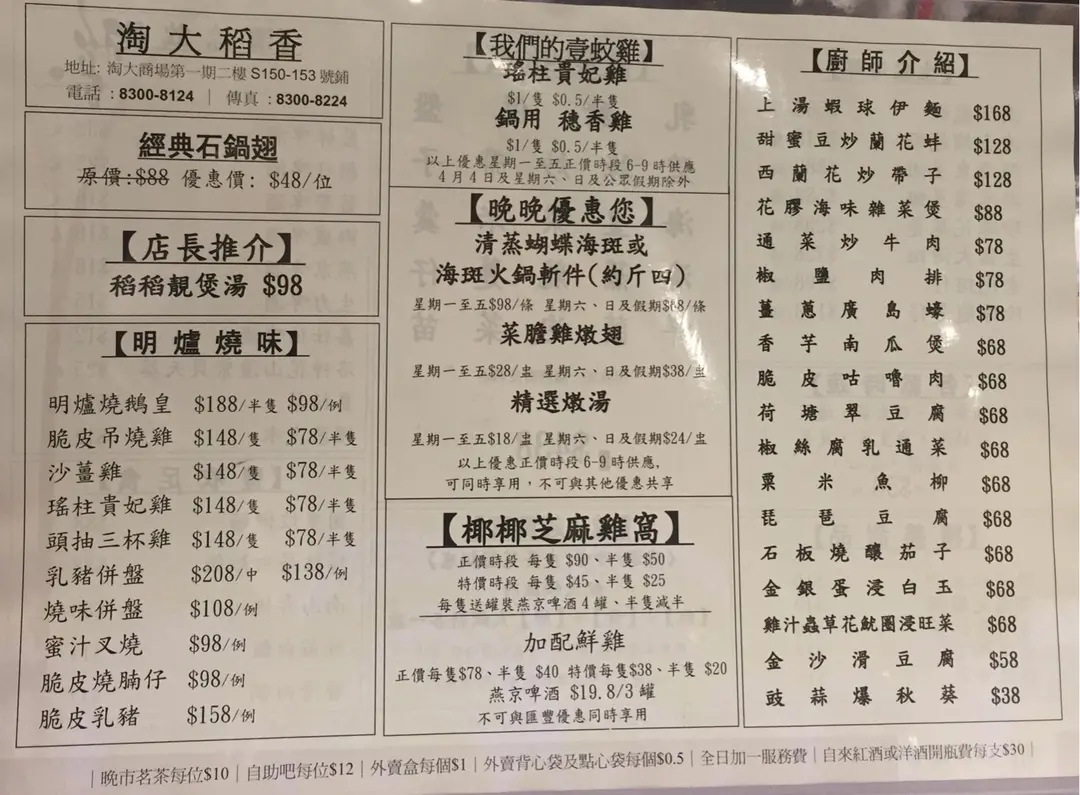 淘大稻香
地址: 淘大商場第一期二樓 S150-153 號鋪
電話 : 8300-8124 | 傳真 : 8300-8224
經典石鍋翅
原價:$88 優惠價: $48/位
【店長推介】
稻稻靚煲湯 $98
【明爐燒味】
明爐燒鵝皇 $188/半隻 $98/例
脆皮吊燒雞 $148/隻 $78/半隻
沙薑雞 $148/隻 $78/半隻
瑤柱貴妃雞 $148/隻 $78/半隻
頭抽三杯雞 $148/隻 $78/半隻
乳豬併盤 $208/中 $138/例
燒味併盤 $108/例
蜜汁叉燒 $98/例
脆皮燒腩仔 $98/例
脆皮乳豬 $158/例
【我們的壹蚊雞】
瑤柱貴妃雞
$1/隻 $0.5/半隻
鍋用 穗香雞
$1/隻 $0.5/半隻
以上優惠星期一至五正價時段6-9時供應
4月4日及星期六、日及公眾假期除外
【晚晚優惠您】
清蒸蝴蝶海斑或
海斑火鍋斬件(約斤四)
星期一至五$98/條 星期六、日及假期$68/條
菜膽雞燉翅
星期一至五$28/盅 星期六、日及假期$38/盅
精選燉湯
星期一至五$18/盅 星期六、日及假期$24/盅
以上優惠正價時段6-9時供應,
可同時享用，不可與其他優惠共享
【椰椰芝麻雞窩】
正價時段 每隻 $90、半隻 $50
特價時段 每隻 $45、半隻 $25
每隻送罐裝燕京啤酒4罐、半隻減半
加配鮮雞
正價每隻$78、半隻 $40 特價每隻$38、半隻 $20
燕京啤酒 $19.8/3 罐
不可與匯豐優惠同時享用
【廚師介紹】
上湯蝦球伊麵 $168
甜蜜豆炒蘭花蚌 $128
西蘭花炒帶子 $128
花膠海味雜菜煲 $88
通菜炒牛肉 $78
椒鹽肉排 $78
薑蔥廣島蠔 $78
香芋南瓜煲 $68
脆皮咕嚕肉 $68
荷塘翠豆腐 $68
椒絲腐乳通菜 $68
粟米魚柳 $68
琵琶豆腐 $68
石板燒釀茄子 $68
金銀蛋浸白玉 $68
雞汁蟲草花魷圈浸旺菜 $68
金沙滑豆腐 $58
豉蒜爆秋葵 $38
| 晚市茗茶每位$10 | 自助吧每位$12 | 外賣盒每個$1 | 外賣背心袋及點心袋每個$0.5 | 全日加一服務費 | 自來紅酒或洋酒開瓶費每支$30 |